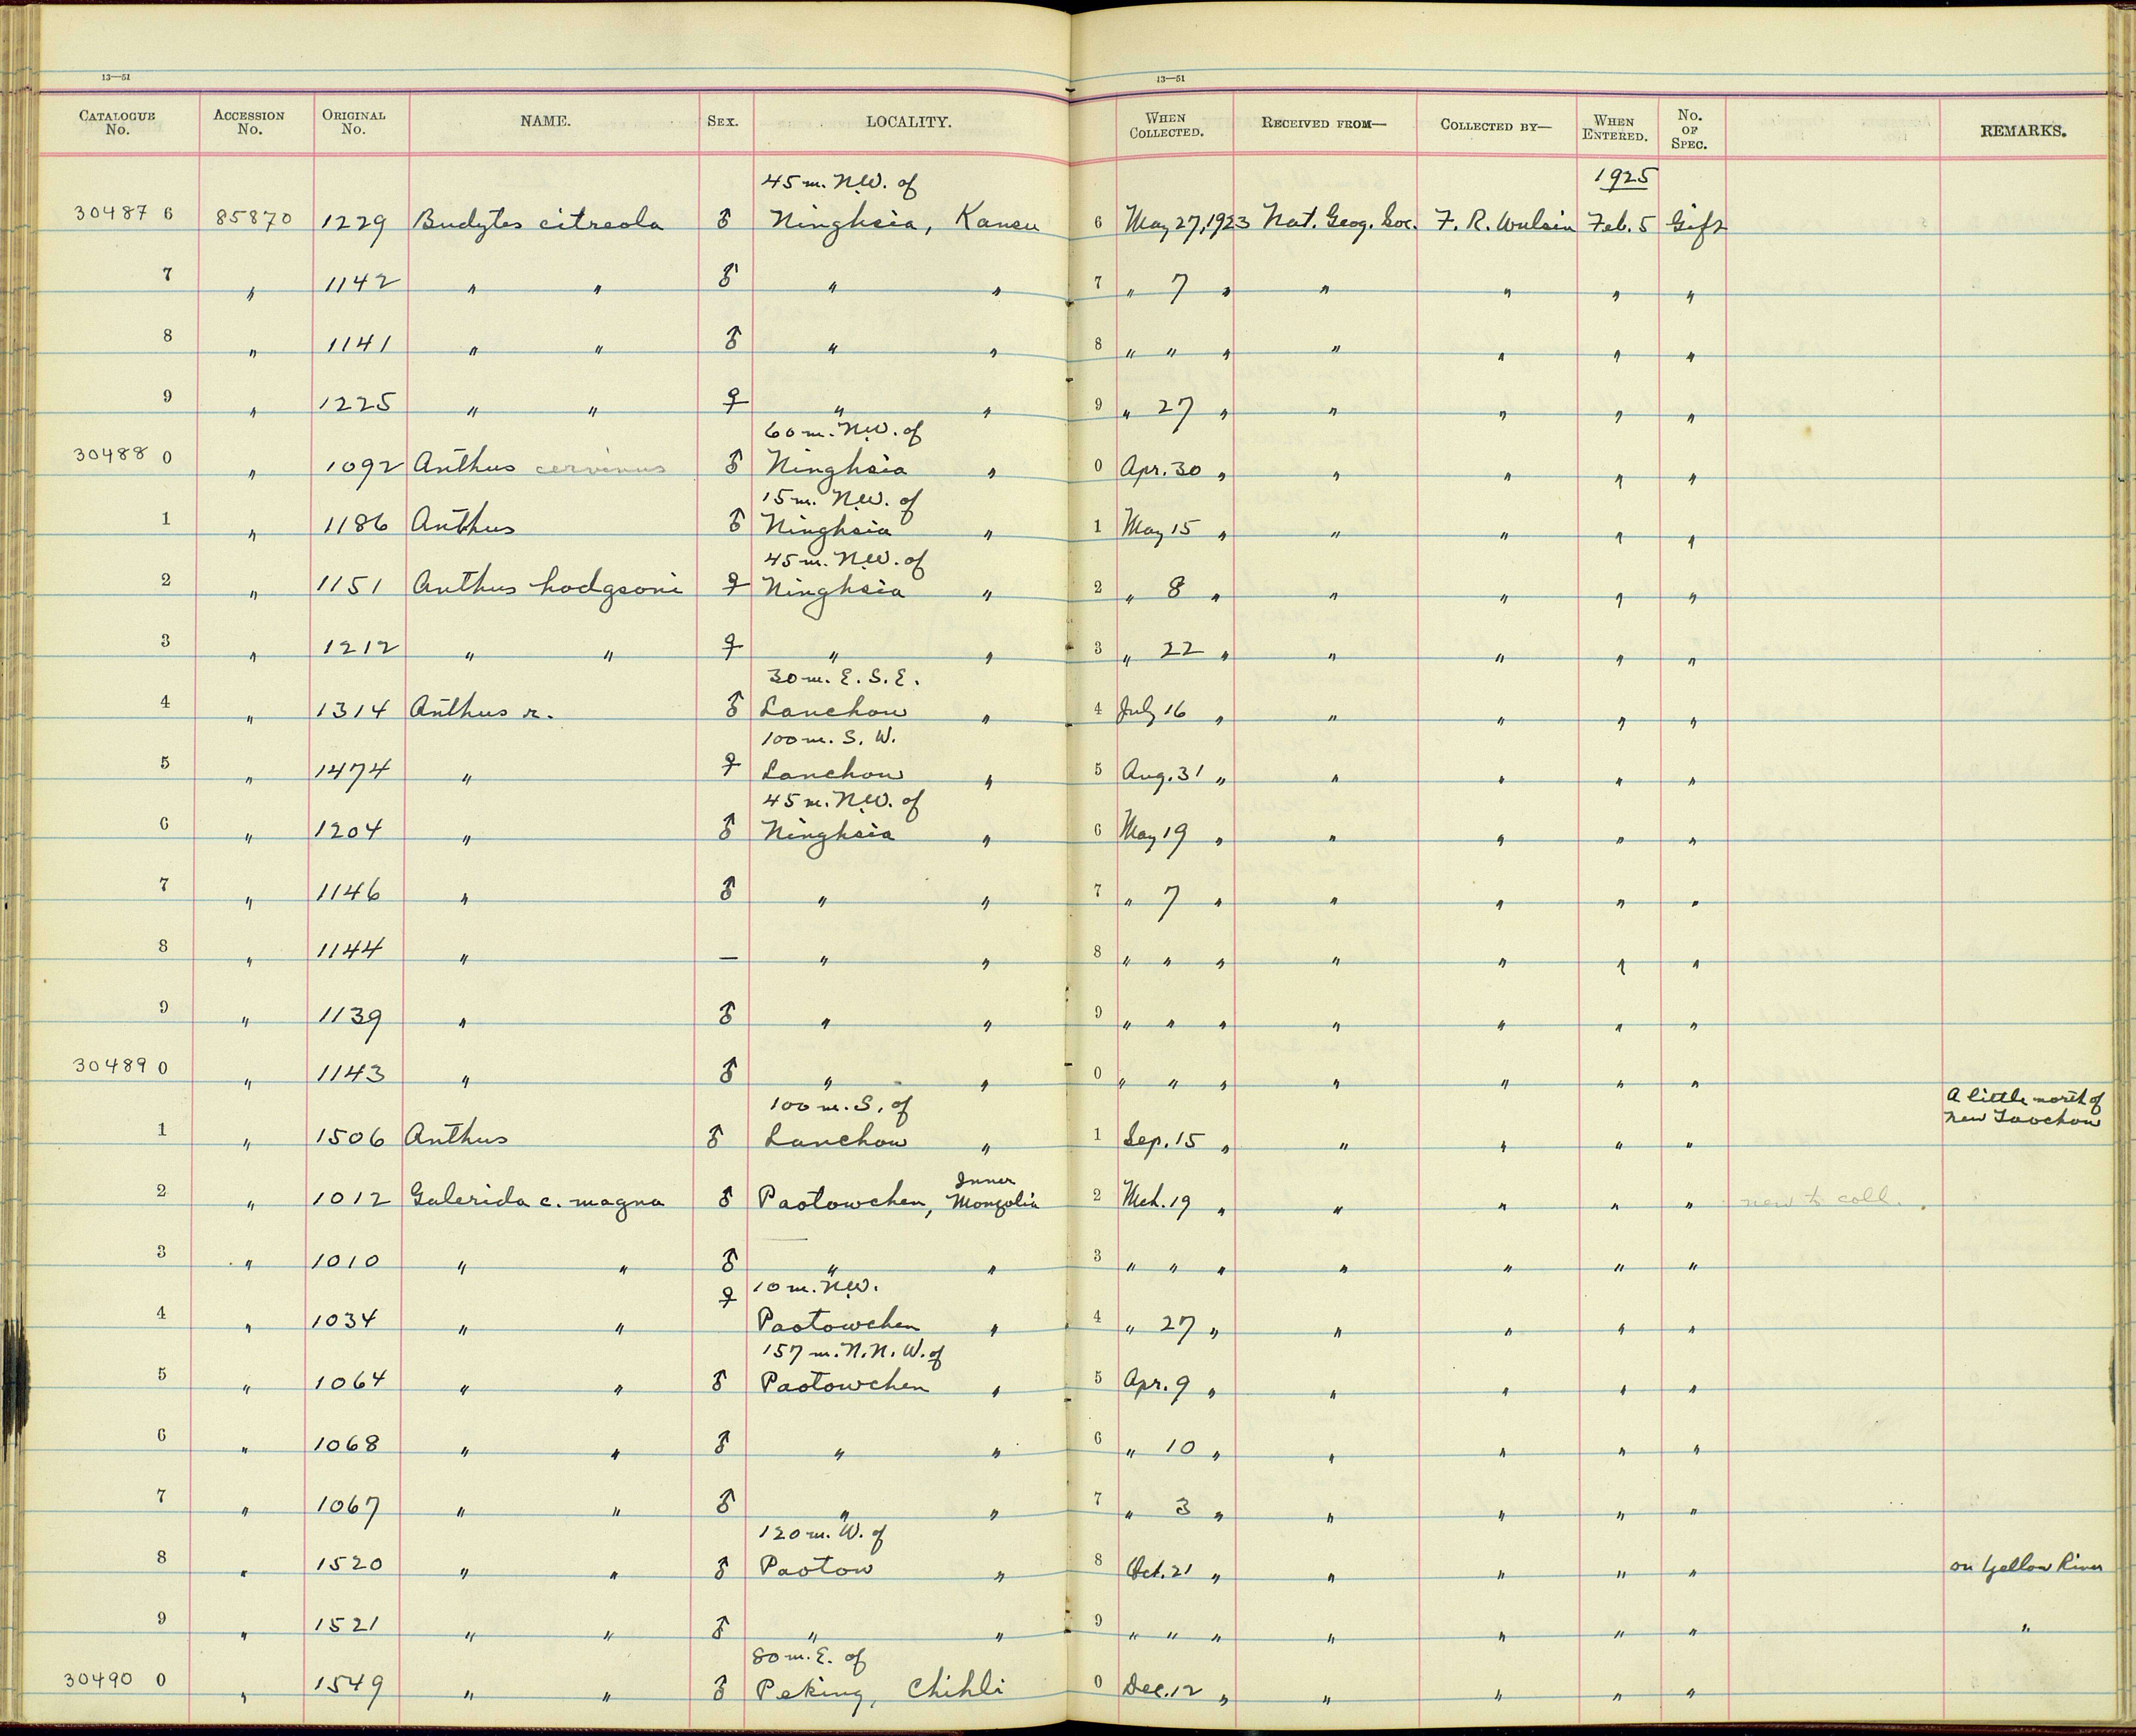 13—51 13—51
CATALOGUE No. ACCESSION No. ORIGINAL No. NAME. SEX. LOCALITY. WHEN COLLECTED. RECEIVED FROM— COLLECTED BY— WHEN ENTERED. No. OF SPEC. REMARKS.
45 m. N.W. of 1925
30487 6 85870 1229 Budytes citreola ♂ Ninghsia, Kansu 6 May 27, 1923 Nat. Geog. Soc. F. R. Wulsin Feb. 5 Gift
7 " 1142 " " ♂ " " 7 " 7 " " " " "
8 " 1141 " " ♂ " " 8 " " " " " " "
9 " 1225 " " ♀ " " 9 " 27 " " " " "
60 m. N.W. of
30488 0 " 1092 Anthus cervinus ♂ Ninghsia " 0 Apr. 30 " " " " "
15 m. N.W. of
1 " 1186 Anthus ♂ Ninghsia " 1 May 15 " " " " "
45 m. N.W. of
2 " 1151 Anthus hodgsoni ♀ Ninghsia " 2 " 8 " " " " "
3 " 1212 " " ♀ " " 3 " 22 " " " " "
30 m. E. S. E.
4 " 1314 Anthus r. ♂ Lanchow " 4 July 16 " " " " "
100 m. S. W.
5 " 1474 " ♀ Lanchow " 5 Aug. 31 " " " " "
45 m. N.W. of
6 " 1204 " ♂ Ninghsia " 6 May 19 " " " " "
7 " 1146 " ♂ " " 7 " 7 " " " " "
8 " 1144 " — " " 8 " " " " " " "
9 " 1139 " ♂ " " 9 " " " " " " "
30489 0 " 1143 " ♂ " " 0 " " " " " " "
100 m. S. of A little north of
1 " 1506 Anthus ♂ Lanchow " 1 Sep. 15 " " " " " New Taochow
Inner
2 " 1012 Galerida c. magna ♂ Paotowchen, Mongolia 2 Mch. 19 " " " " " new to coll.
3 " 1010 " " ♂ " " 3 " " " " " " "
10 m. N.W.
4 " 1034 " " ♀ Paotowchen " 4 " 27 " " " " "
157 m. N. N. W. of
5 " 1064 " " ♂ Paotowchen " 5 Apr. 9 " " " " "
6 " 1068 " " ♂ " " 6 " 10 " " " " "
7 " 1067 " " ♂ " " 7 " 3 " " " " "
120 m. W. of
8 " 1520 " " ♂ Paotow " 8 Oct. 21 " " " " " on Yellow River
9 " 1521 " " ♂ " " 9 " " " " " " " "
80 m. E. of
30490 0 " 1549 " " ♂ Peking, Chihli 0 Dec. 12 " " " " "